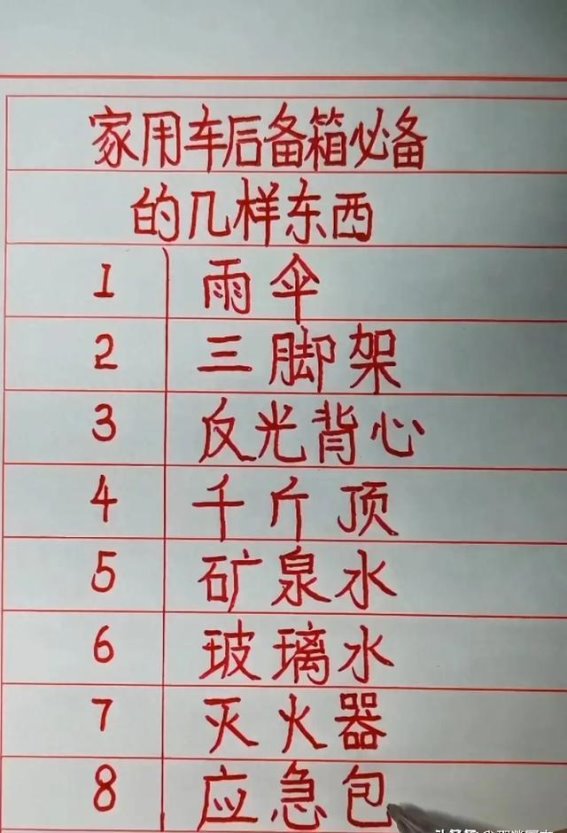 家用车后备箱必备
的几样东西
1 雨伞
2 三脚架
3 反光背心
4 千斤顶
5 矿泉水
6 玻璃水
7 灭火器
8 应急包